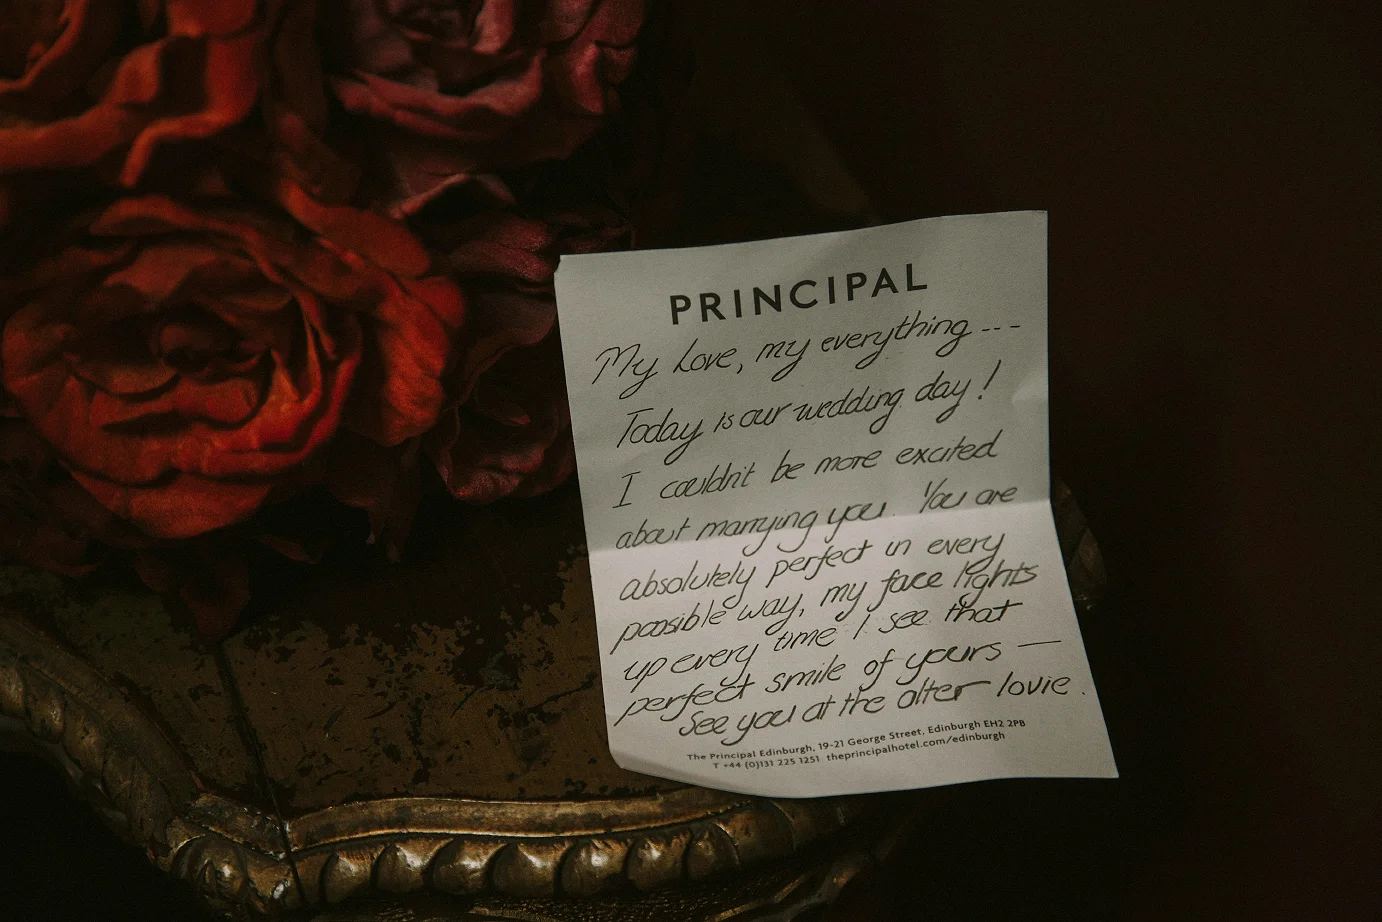 PRINCIPAL
My Love, my everything ---
Today is our wedding day!
I couldn't be more excited
about marrying you. You are
absolutely perfect in every
possible way, my face lights
up every time I see that
perfect smile of yours —
See you at the alter lovie.
The Principal Edinburgh, 19-21 George Street, Edinburgh EH2 2PB
T +44 (0)131 225 1251 theprincipalhotel.com/edinburgh